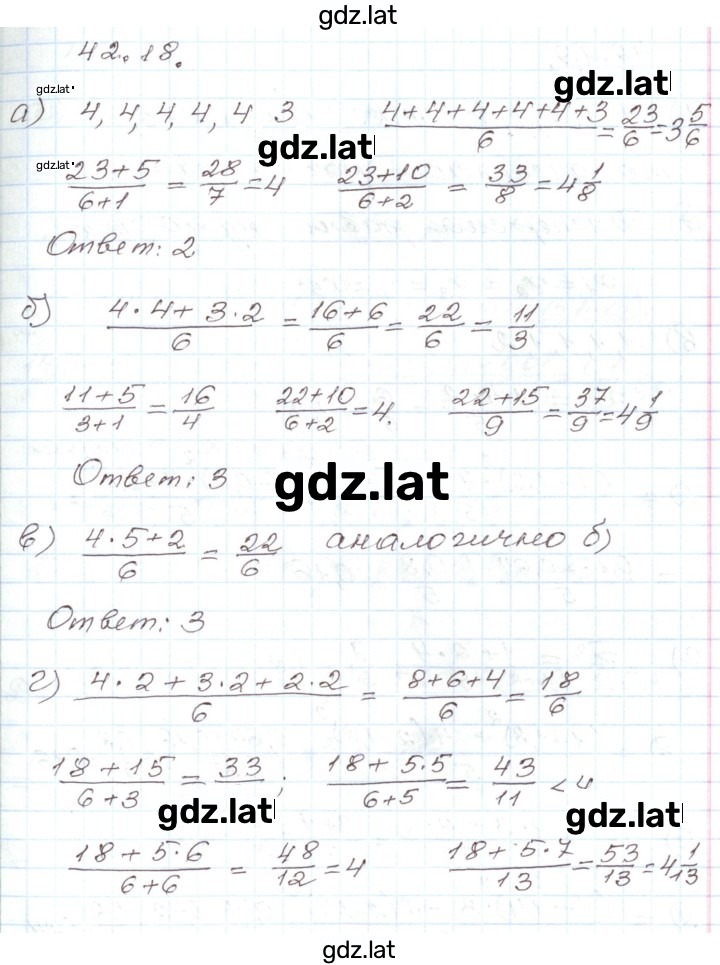 gdz.lat
42.18.
gdz.lat gdz.lat
а) 4, 4, 4, 4, 4 3 (4+4+4+4+4+3)/6 = 23/6 = 3 5/6
gdz.lat
gdz.lat (23+5)/(6+1) = 28/7 = 4 (23+10)/(6+2) = 33/8 = 4 1/8
Ответ: 2
б) (4·4+3·2)/6 = (16+6)/6 = 22/6 = 11/3
(11+5)/(3+1) = 16/4 (22+10)/(6+2) = 4. (22+15)/9 = 37/9 = 4 1/9
Ответ: 3
gdz.lat
в) (4·5+2)/6 = 22/6 аналогично б)
Ответ: 3
г) (4·2+3·2+2·2)/6 = (8+6+4)/6 = 18/6
(18+15)/(6+3) = 33/ ; (18+5·5)/(6+5) = 43/11 < 4
gdz.lat gdz.lat
(18+5·6)/(6+6) = 48/12 = 4 (18+5·7)/13 = 53/13 = 4 1/13
gdz.lat